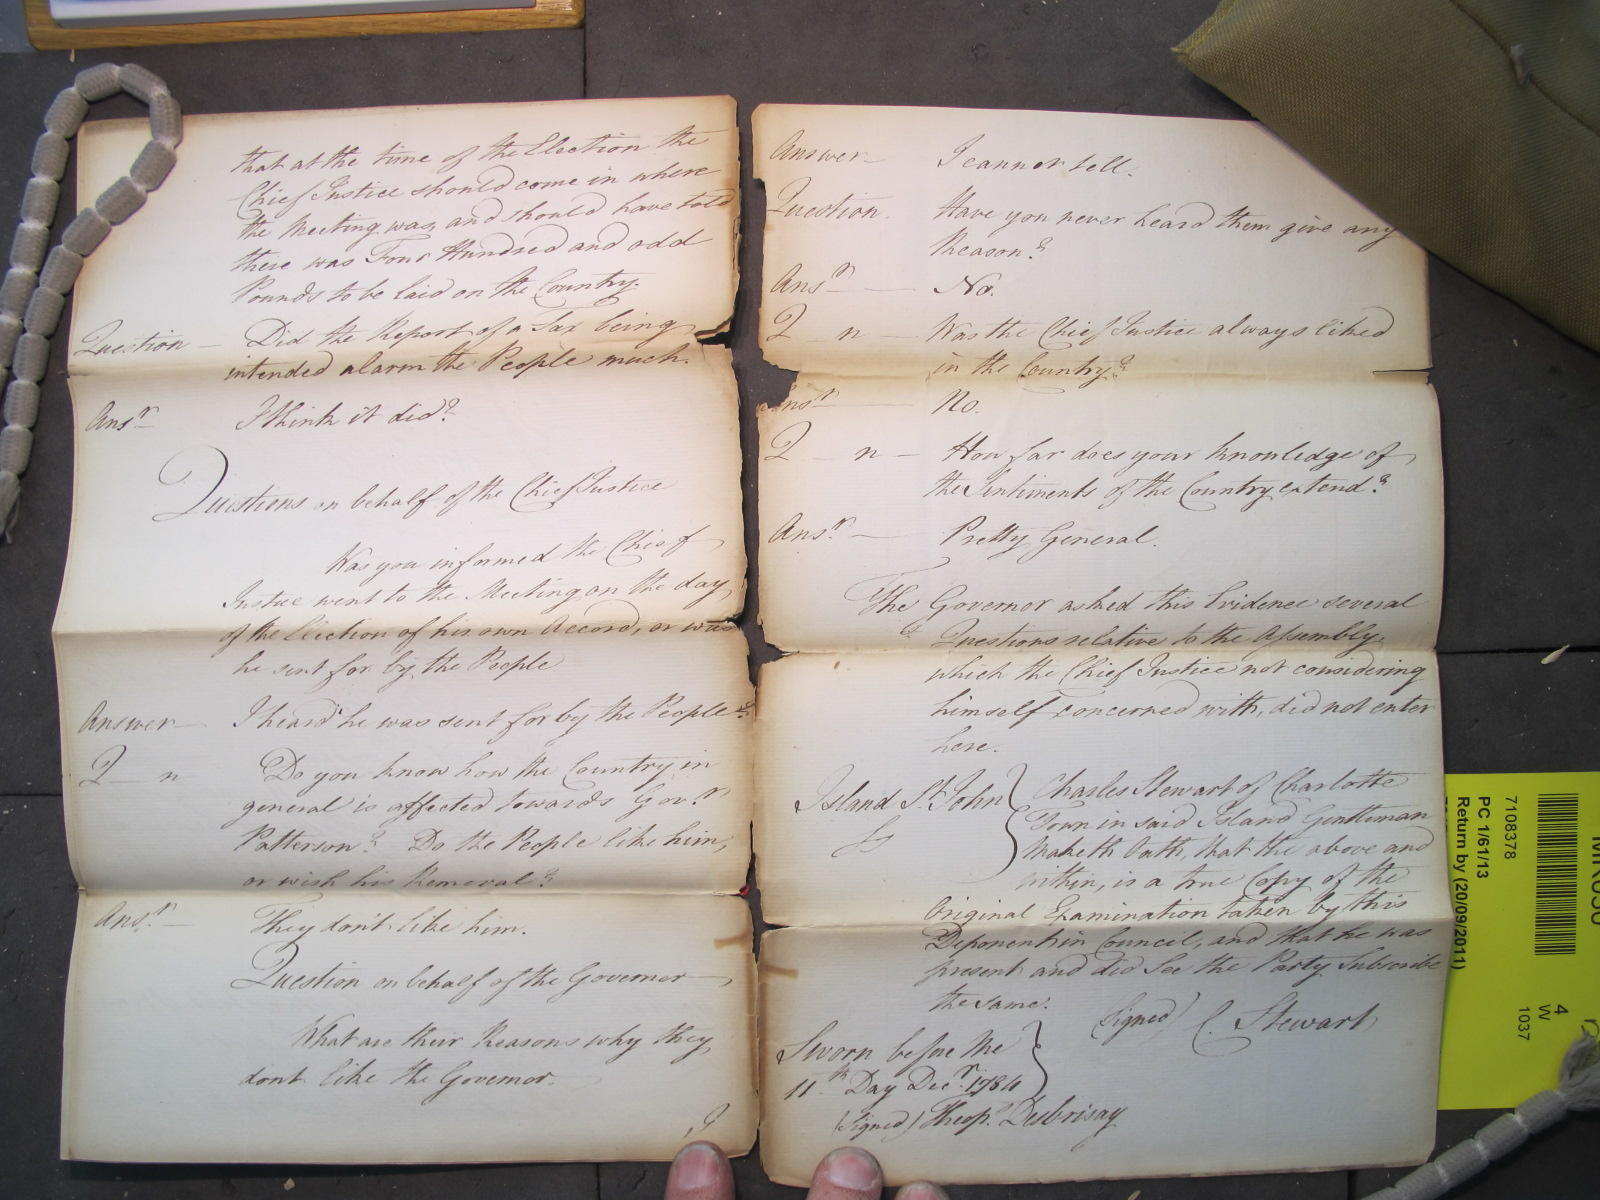 that at the time of the Election the
Chief Justice should come in where
the Meeting was, and should have told
there was Four Hundred and odd
Pounds to be laid on the Country.
Question — Did the Report of a Tax being
intended alarm the People much.
Ans.r — I think it did?
Questions on behalf of the Chief Justice
Was you informed the Chief
Justice went to the Meeting on the day
of the Election of his own Accord, or was
he sent for by the People
Answer — I heard he was sent for by the People.
Q — n Do you know how the Country in
general is affected towards Gov.r
Patterson? Do the People like him,
or wish his Removal?
Ans.r — They dont like him.
Question on behalf of the Governor
What are their Reasons why they
dont like the Governor.
I
Answer — I cannot tell.
Question. Have you never heard them give any
Reason?
Ans.r — No.
Q — n — Was the Chief Justice always liked
in the Country?
Ans.r — No.
Q — n — How far does your knowledge of
the Sentiments of the Country extend?
Ans.r — Pretty General.
The Governor asked this Evidence several
Questions relative to the Assembly.
which the Chief Justice not considering
himself concerned with, did not enter
here.
Island St. John } Charles Stewart of Charlotte
Ss Town in said Island Gentleman
Maketh Oath, that the above and
within, is a true Copy of the
Original Examination taken by this
Deponent in Council, and that he was
present and did See the Party Subscribe
the same.
(Signed) C. Stewart
Sworn before Me
11th Day Dec.r 1784
(Signed) Theop.s Desbrisay
7108378
PC 1/61/13
Return by (20/09/2011)
4
W
1037